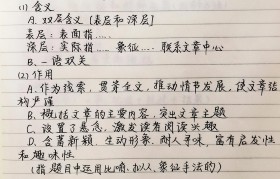 (1) 含义
A. 双层含义 [表层和深层]
表层：表面指……
深层：实际指…… 象征…… 联系文章中心
B. 一语双关
(2) 作用
A. 作为线索，贯穿全文，推动情节发展，使文章结
构严谨
B. 概括文章的主要内容，突出文章主题
C. 设置了悬念，激发读者阅读兴趣
D. 含蓄新颖、生动形象、耐人寻味，富有启发性
和趣味性
(指题目中运用比喻、拟人、象征手法的)